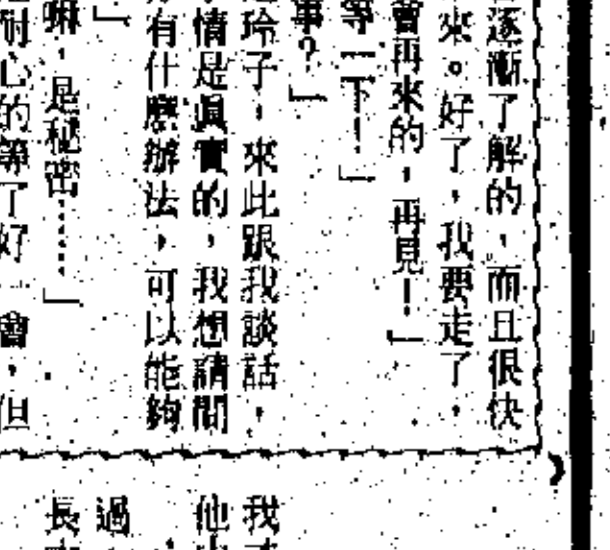 逐漸了解的，而且很快
來。好了，我要走了，
會再來的，再見！」
等一下！」
事？」
玲子，來此跟我談話，
情是真實的，我想請問
有什麼辦法，可以能夠
」
嘛，是秘密……」
耐心的等了好一會，但
我
他
過
長